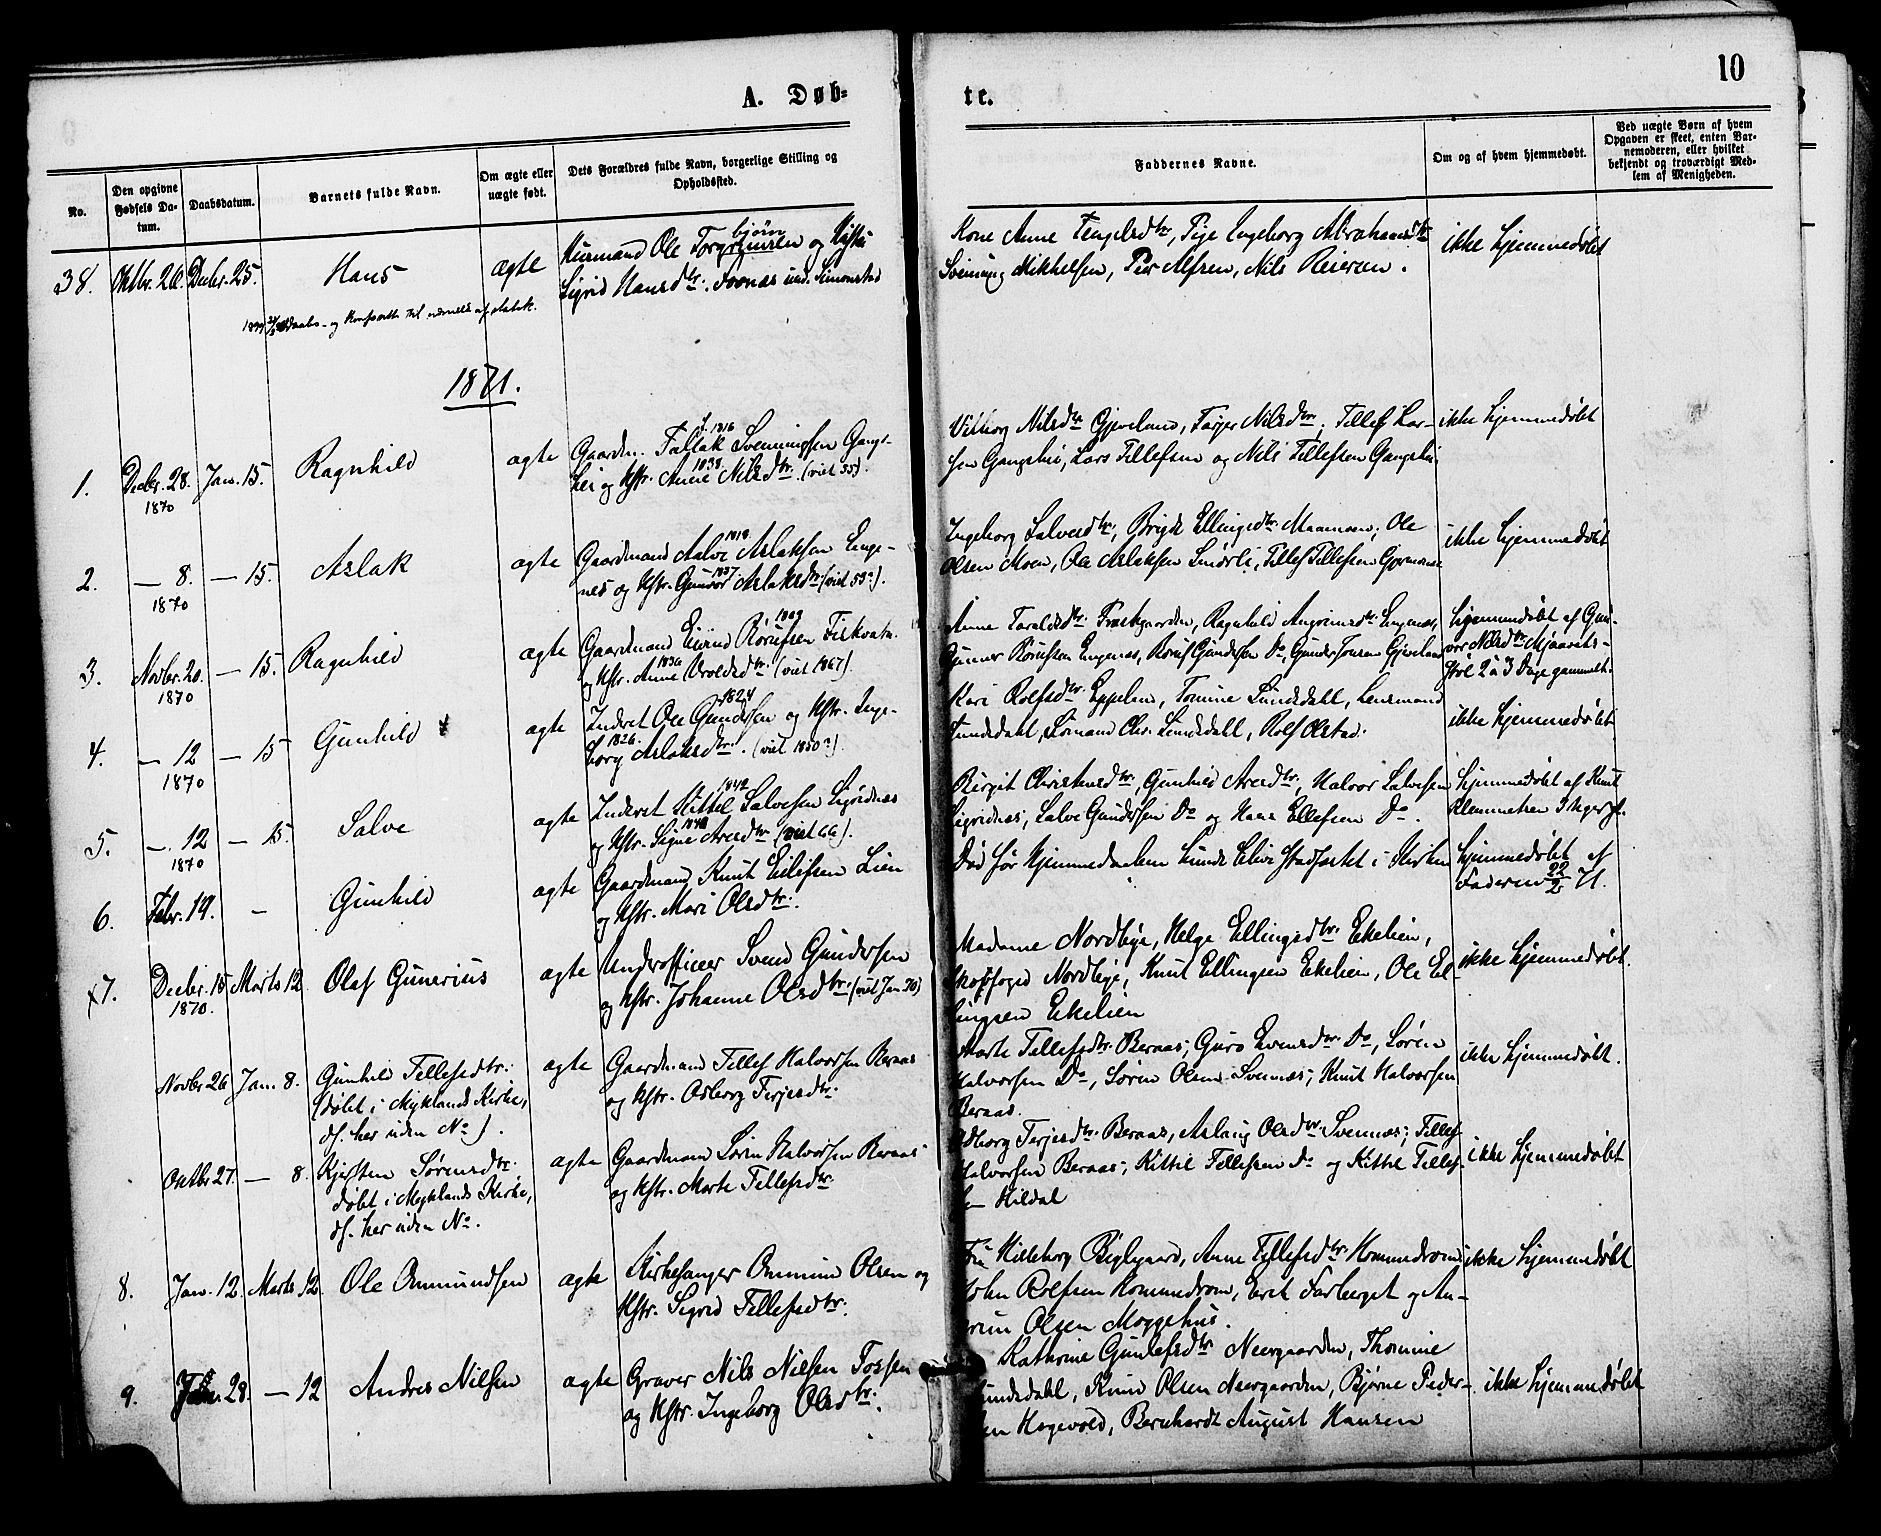 10
A. Døb-
te.
No.
Den opgivne Fødsels Datum.
Daabsdatum.
Barnets fulde Navn.
Om ægte eller uægte født.
Dets Forældres fulde Navn, borgerlige Stilling og Opholdssted.
Faddernes Navne.
Om og af hvem hjemmedøbt.
Ved uægte Børn af hvem Opgaven er skeet, enten Barnemoderen, eller hvilket bekjendt og troværdigt Medlem af Menigheden.
38. Oktbr. 26. Decbr. 25. Hans ægte
Huusmand Ole Torbjørnsen og Hustru
Sigrid Hansdtr. und. Simonstad
Kone Anne Tengelsdtr, Pige Ingeborg Abrahamsdtr
Svenning Mikkelsen, Per Alfsen, Nils Reiersen.
ikke hjemmedøbt
1871.
1. Decbr. 28. 1870 Jan. 15. Ragnhild ægte
Gaardm. Tallak f. 1816 Svenningsen Gangs-
hei og Hstr. Anne 1838 Nilsdtr. (viet 55).
Vilborg Nilsdtr Gjeveland, Tarjer Nilsdtr. Tellef Lar-
sen Gangshei, Lars Tellefsen og Nils Tellefsen Gangshei.
ikke hjemmedøbt
2. — 8. 1870 — 15. Aslak ægte
Gaardmand Salve 1819 Aslaksen Enge-
nes og Hstr. Gunvor 1837 Aslaksdtr. (viet 55?).
Ingeborg Salvesdtr, Brigit Ellingsdtr; Ole
Olsen Moen, Ole Aslaksen, Tellef Tellefsen
ikke hjemmedøbt
3. Novbr. 20. 1870 — 15. Ragnhild ægte
Gaardmand Eivind 1809 Rørufsen Fiskvatn
og Hstr. Anne 1836 Oroldsdtr. (viet 1867).
Anne Taraldsdtr. Ragnhild Angrimsdtr. Engenes,
Gunner Rørufsen Engenes, Røruf Gundersen Do, Gunder Jonsen Gjeveland
hjemmedøbt af Gun-
vor Nilsdtr
2 a 3 Dage gammelt.
4. — 12 1870 — 15 Gunhild ægte
Inderst Ole 1824 Gundersen og Hstr. Inge-
borg 1826 Aslaksdtr. (viet 1850?).
Kari Rolfsdtr. Eppeland, Tomine Lundsdahl, Lensmand
Lundsdahl, Chr. Lundsdahl, Rolf Olstad.
ikke hjemmedøbt
5. — 12 1870 — 15. Salve ægte
Inderst Kittel 1842 Salvesen Sigridnæs
og Hstr. Signe 1842 Aresdtr (viet 66).
Birgit Christensdtr, Gunhild Aresdtr, Halvor Salvesen
Sigridnæs, Salve Gundersen Do og Hans Ellefsen Do.
hjemmedøbt af Knut
Klemmetsen 3 Uger gl.
6. Febr. 19. — Gunhild ægte
Gaardmand Knut Eilefsen Lien
og Hstr. Mari Olsdtr.
Død før Hjemmedaaben kunde blive stadfæstet i Kirken
hjemmedøbt af
Faderen 22/2 71.
7. Decbr. 15 1870. Marts 12 Olaf Gunerius ægte
Underofficeer Svend Gundersen
og Hstr. Johanne Olsdtr. (viet Jan. 70)
Madame Nordbye, Helge Ellingsdtr. Ekelien,
Skovfoged Nordbye, Knut Ellingsen Ekelien, Ole El-
lingsen Ekelien
ikke hjemmedøbt.
Novbr 26 Jan. 8. Gunhild Tellefsdtr.
(døbt i Myklands Kirke,
df. her uden No).
ægte
Gaardmand Tellef Halvorsen Beraas
og Hstr. Asborg Terjesdtr.
Marte Tellefsdtr. Beraas; Guro Evensdtr. Do, Søren
Halvorsen Do, Søren Olsen Svennes; Knut Halvorsen
Beraas.
ikke hjemmedøbt.
Oktbr 27. — 8. Kjersten Sørensdtr.
døbt i Myklands Kirke,
df. her uden No.
ægte
Gaardmand Søren Halvorsen Beraas
og Hstr. Marte Tellefsdtr.
Asborg Terjesdtr. Beraas, Aslaug Olsdtr. Svennes; Tellef
Halvorsen Beraas; Kittil Tellefsen Do og Kittil Tellef-
sen Hildal
ikke hjemmedøbt
8. Jan. 12. Marts 12. Ole Ommundsen ægte
Kirkesanger Ommund Olsen og
Hstr. Sigrid Tellefsdtr.
Anne Tellefsdtr. Hommedrom
John Rolfsen Hommedrom, og An-
grim Olsen
ikke hjemmedøbt
9. 28. — 12 Andres Nilsen ægte
Graver Nils Nielsen Fossen
og Hstr. Ingeborg Olsdtr.
Kathrine Gunlefsdtr Neergaarden, Thomine
Lundsdahl, Knud Olsen Neergaarden, Bjørne Peder-
sen Hagevold, Bernhardt August Hansen
ikke hjemmedøbt